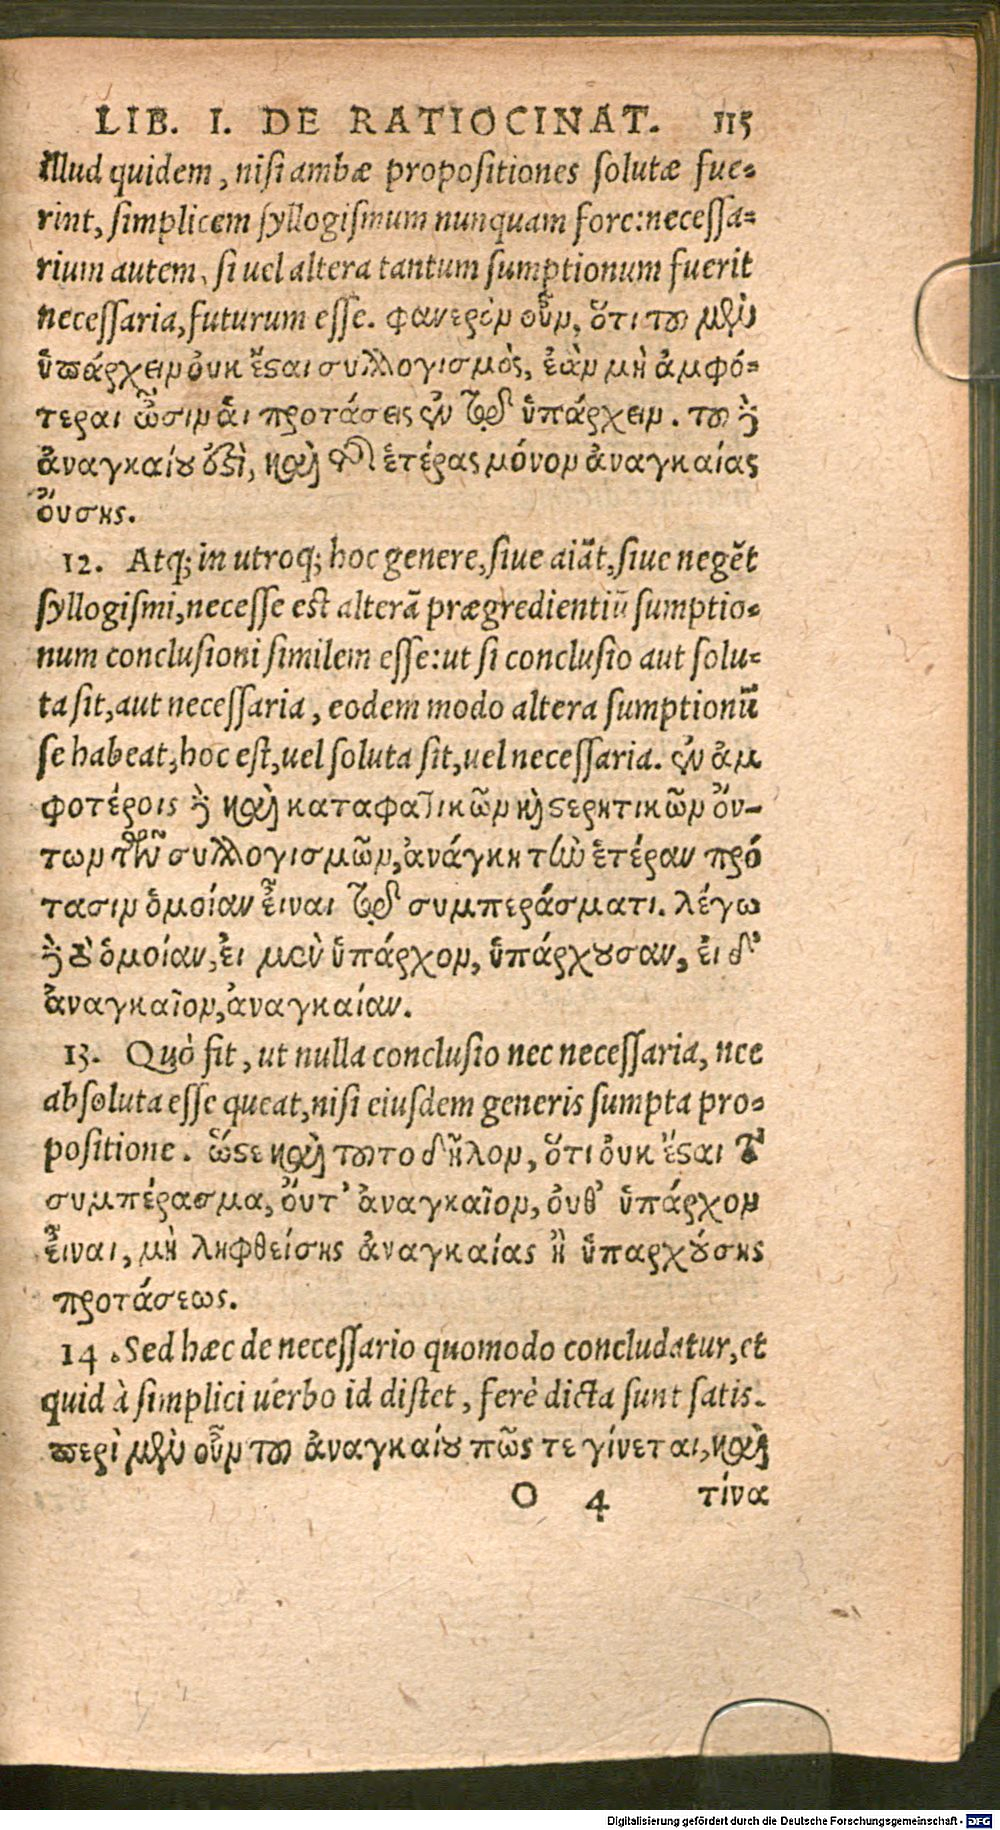 LIB. I. DE RATIOCINAT. 115
illud quidem, nisi ambæ propositiones solutæ fue-
rint, simplicem syllogismum nunquam fore: necessa-
rium autem, si uel altera tantum sumptionum fuerit
necessaria, futurum esse. φανερὸν οὖν, ὅτι τοῦ μὲν
ὑπάρχειν οὐκ ἔσται συλλογισμὸς, ἐὰν μὴ ἀμφό-
τεραι ὦσιν αἱ προτάσεις ἐν τῷ ὑπάρχειν. τοῦ δὲ
ἀναγκαίου ἐστὶ, καὶ τῆς ἑτέρας μόνον ἀναγκαίας
οὔσης.
12. Atq; in utroq; hoc genere, siue aiãt, siue negẽt
syllogismi, necesse est alterã prægredientiũ sumptio-
num conclusioni similem esse: ut si conclusio aut solu-
ta sit, aut necessaria, eodem modo altera sumptionũ
se habeat, hoc est, uel soluta sit, uel necessaria. ἐν ἀμ
φοτέροις δὲ καὶ καταφατικῶν καὶ στερητικῶν ὄν-
των τῶν συλλογισμῶν, ἀνάγκη τὴν ἑτέραν πρό
τασιν ὁμοίαν εἶναι τῷ συμπεράσματι. λέγω
δὲ τὸ ὁμοίαν, εἰ μὲν ὑπάρχον, ὑπάρχουσαν, εἰ δ’
ἀναγκαῖον, ἀναγκαίαν.
13. Quò fit, ut nulla conclusio nec necessaria, nec
absoluta esse queat, nisi eiusdem generis sumpta pro-
positione. ὥστε καὶ τοῦτο δῆλον, ὅτι οὐκ ἔσται τὸ
συμπέρασμα, οὔτ’ ἀναγκαῖον, οὐθ’ ὑπάρχον
εἶναι, μὴ ληφθείσης ἀναγκαίας ἢ ὑπαρχούσης
προτάσεως.
14. Sed hæc de necessario quomodo concludatur, et
quid à simplici uerbo id distet, ferè dicta sunt satis.
περὶ μὲν οὖν τοῦ ἀναγκαίου πῶς τε γίνεται, καὶ
O 4 τίνα
Digitalisierung gefördert durch die Deutsche Forschungsgemeinschaft - DFG